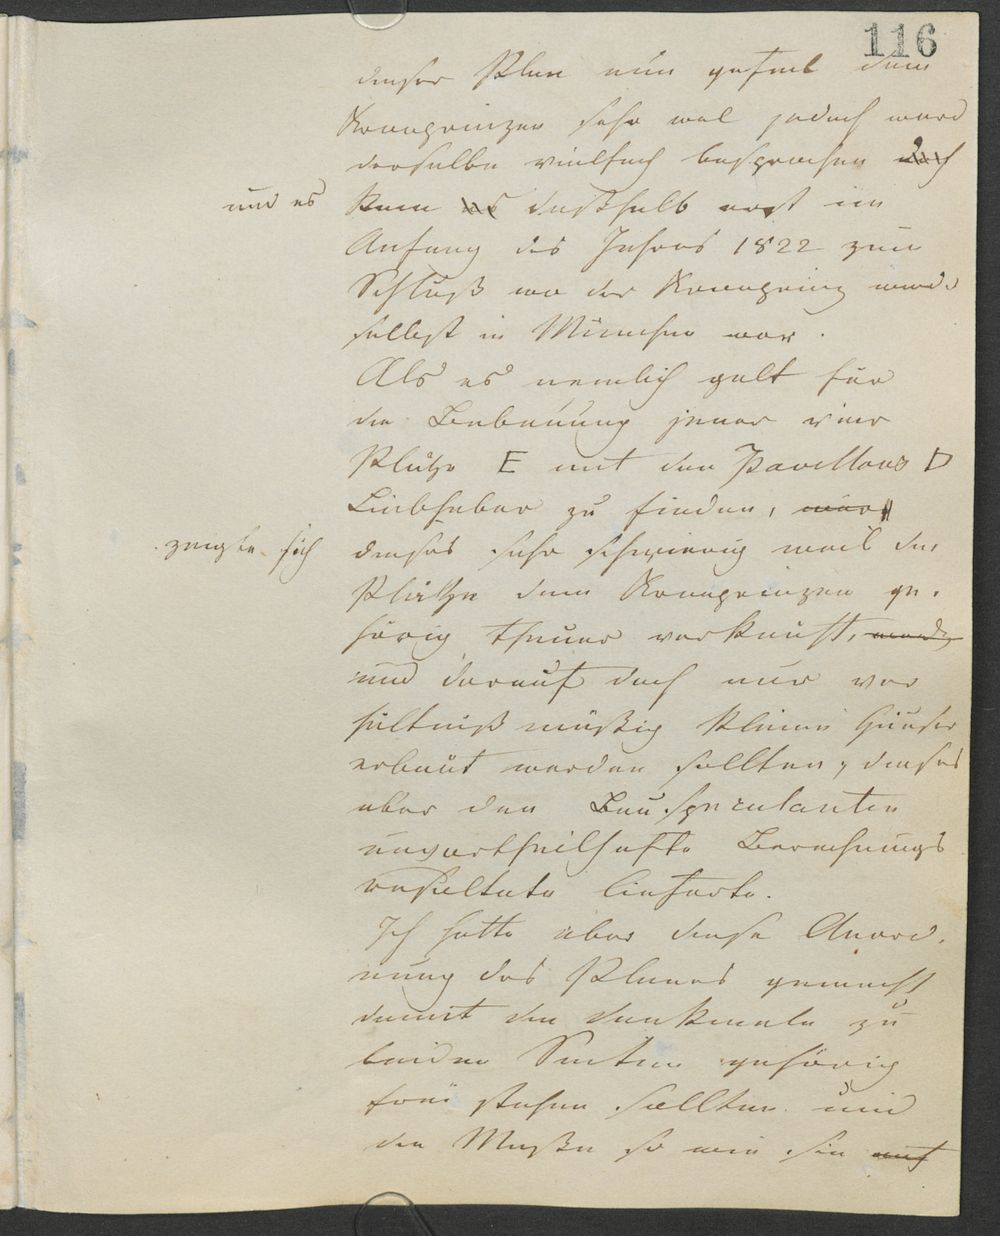 116
dieser Plan nun gefiel dem
Kronprinzen sehr wol jedoch ward
derselbe vielfach besprochen
und es kam es deßhalb erst im
Anfang des Jahres 1822 zum
Schluß wo der Kronprinz wieder
selbst in München war.
Als es nemlich galt für
die Bebauung jener vier
Plätze E mit den Pavillons D
Liebhaber zu finden, war
zeigte sich dieses sehr schwierig weil die
Plätze dem Kronprinzen ge-
hörig theuer verkauft, werden
und darauf doch nur ver
hältniß mäßig kleine Häuser
erbaut werden sollten, dieses
aber den Bau speculanten
unvortheilhafte Berechnungs
resultate lieferte.
Ich hatte aber diese Anord-
nung des Planes gemacht
damit die denkmale zu
beiden Seiten gehörig
frei stehen sollten und
die Masse so wie sie auf